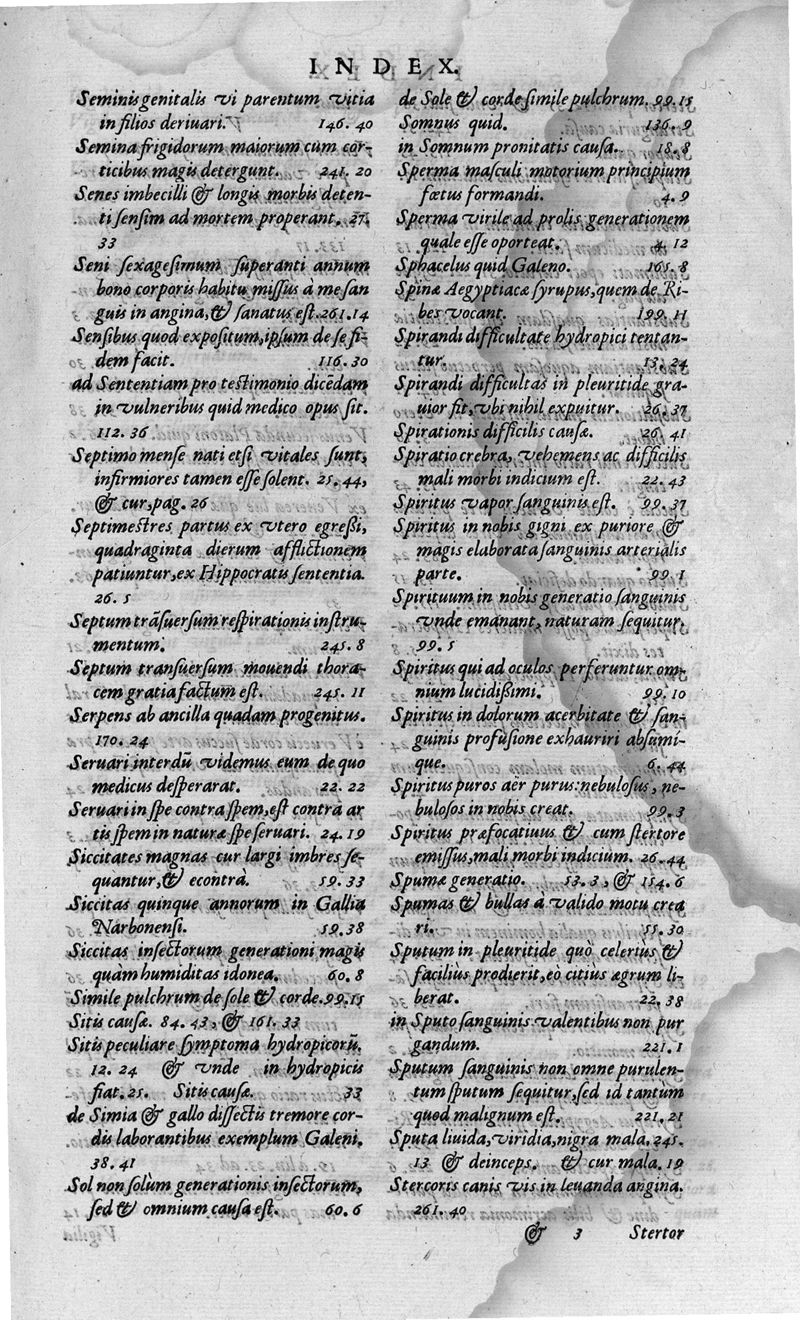 INDEX.
Seminis genitalis vi parentum vitia
in filios deriuari. 146. 40
Semina frigidorum maiorum cum cor-
ticibus magis detergunt. 241. 20
Senes imbecilli & longis morbis deten-
ti sensim ad mortem properant. 27.
33
Seni sexagesimum superanti annum
bono corporis habitu missus à me san
guis in angina, & sanatus est. 261. 14
Sensibus quod expositum, ipsum de se fi-
dem facit. 116. 30
ad Sententiam pro testimonio dicẽdam
in vulneribus quid medico opus sit.
112. 36
Septimo mense nati etsi vitales sunt,
infirmiores tamen esse solent. 25. 44,
& cur, pag. 26
Septimestres partus ex vtero egreßi,
quadraginta dierum afflictionem
patiuntur, ex Hippocratis sententia.
26. 5
Septum trãsuersum respirationis instru-
mentum. 245. 8
Septum transuersum mouendi thora-
cem gratia factum est. 245. 11
Serpens ab ancilla quadam progenitus.
170. 24
Seruari interdũ videmus eum de quo
medicus desperarat. 22. 22
Seruari in spe contra spem, est contra ar
tis spem in naturæ spe seruari. 24. 19
Siccitates magnas cur largi imbres se-
quantur, & econtrà. 59. 33
Siccitas quinque annorum in Gallia
Narbonensi. 59. 38
Siccitas insectorum generationi magis
quàm humiditas idonea. 60. 8
Simile pulchrum de sole & corde. 99. 15
Sitis causæ. 84. 43, & 161. 33
Sitis peculiare symptoma hydropicorũ.
12. 24 & vnde in hydropicis
fiat. 25. Sitis causæ. 33
de Simia & gallo dissectis tremore cor-
dis laborantibus exemplum Galeni.
38. 41
Sol non solùm generationis insectorum,
sed & omnium causa est. 60. 6
de Sole & corde simile pulchrum. 99. 15
Somnus quid. 136. 9
in Somnum pronitatis causa. 18. 8
Sperma masculi motorium principium
fœtus formandi. 4. 9
Sperma virile ad prolis generationem
quale esse oporteat. 4. 12
Sphacelus quid Galeno. 165. 8
Spinæ Aegyptiacæ syrupus, quem de Ri-
bes vocant. 199. 11
Spirandi difficultate hydropici tentan-
tur. 13. 24
Spirandi difficultas in pleuritide gra-
uior fit, vbi nihil expuitur. 26. 37
Spirationis difficilis causæ. 26. 41
Spiratio crebra, vehemens ac difficilis
mali morbi indicium est. 22. 43
Spiritus vapor sanguinis est. 99. 37
Spiritus in nobis gigni ex puriore &
magis elaborata sanguinis arterialis
parte. 99. 1
Spirituum in nobis generatio sanguinis
vnde emanant, naturam sequitur.
99. 5
Spiritus qui ad oculos perferuntur om-
nium lucidißimi. 99. 10
Spiritus in dolorum acerbitate & san-
guinis profusione exhauriri absumi-
que. 6. 44
Spiritus puros aër purus: nebulosus, ne-
bulosos in nobis creat. 99. 3
Spiritus præfocatiuus & cum stertore
emissus, mali morbi indicium. 26. 44
Spumæ generatio. 53. 3, & 154. 6
Spumas & bullas à valido motu crea
ri. 55. 30
Sputum in pleuritide quò celeriùs &
faciliùs prodierit, eò citiùs ægrum li-
berat. 22. 38
in Sputo sanguinis valentibus non pur
gandum. 221. 1
Sputum sanguinis non omne purulen-
tum sputum sequitur, sed id tantùm
quod malignum est. 221. 21
Sputa liuida, viridia, nigra mala. 245.
13 & deinceps. & cur mala. 19
Stercoris canis vis in leuanda angina.
261. 40
& 3 Stertor